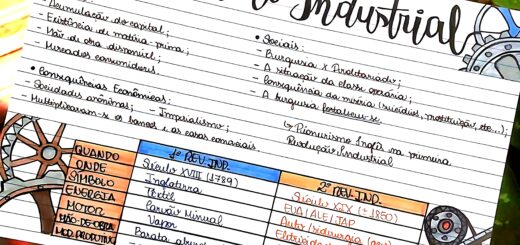 Industrial
- Acumulação do capital;
- Existência de matéria-prima;
- Mão de obra disponível;
- Mercados consumidores.
• Sociais:
- Burguesia x Proletariado;
- A situação da classe operária;
- Consequência da miséria (suicídios, prostituição, etc...);
- A burguesia fortaleceu-se.
↳ Pioneirismo Inglês na primeira
Revolução Industrial
• Consequências Econômicas:
- Sociedades anônimas; - Imperialismo;
- Multiplicaram-se os bancos e as casas comerciais.
1ª REV. IND. 2ª REV. IND.
QUANDO Século XVIII (1789) Século XIX (± 1850)
ONDE Inglaterra EUA/ALE/JAP
SÍMBOLO Têxtil Auto/Siderurgia
ENERGIA Carvão Mineral
MOTOR Vapor
MÃO-DE-OBRA Barata
MOD. PRODUTIVO